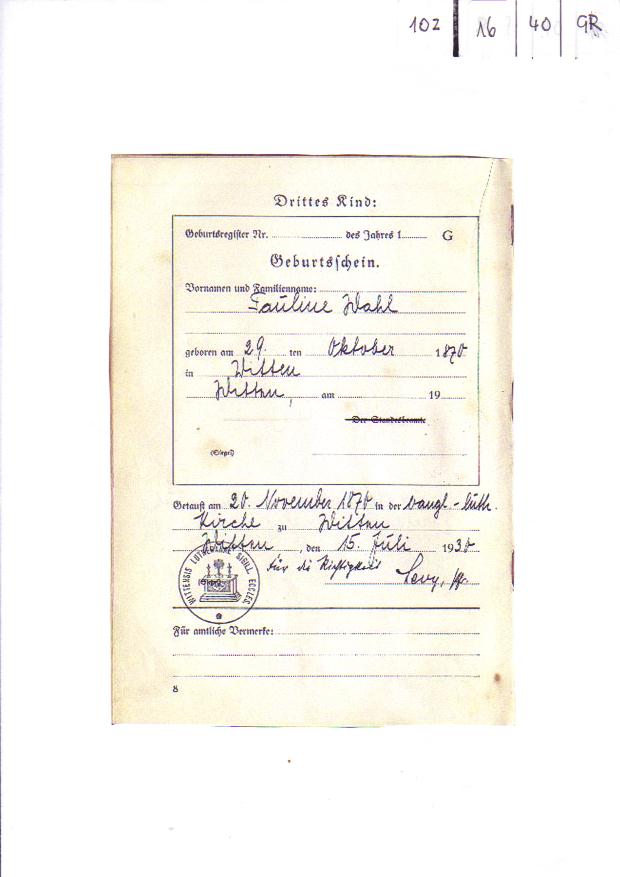 102 16 40 GR
Drittes Kind:
Geburtsregister Nr. des Jahres 1 G
Geburtsschein.
Vornamen und Familienname:
Pauline Wahl
geboren am 29. ten Oktober 1870
in Witten
Witten, am 19
Der Standesbeamte
(Siegel)
Getauft am 20. November 1870 in der evangl.-luth.
Kirche zu Witten
Witten, den 15. Juli 1930
Für die Richtigkeit
(Siegel)
WITTENSIS LUTHERANAE SIGILL. ECCLES.
Für amtliche Vermerke:
8